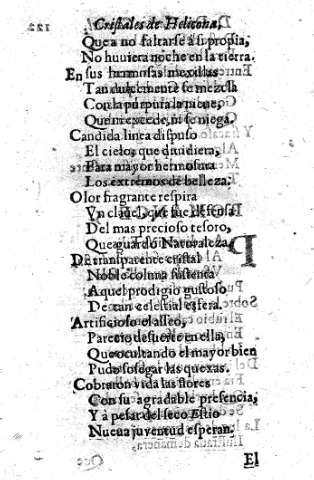 Cristales de Helicona,
Que a no faltarse à si propia,
No huviera noche en la tierra.
En sus hermosas mexillas
Tan dulcemente se mezcla
Con la purpura la nieue,
Que ni excede, ni se niega.
Candida linea dispuso
El cielo, que diuidiera,
Para mayor hermosura
Los extremos de belleza.
Olor fragrante respira
Vn clauel, que fue defensa
Del mas precioso tesoro,
Que guardò Naturaleza.
De transparente cristal
Noble coluna sustenta
Aquel prodigio gustoso
De tan celestial esfera.
Artificioso el asseo,
Parece desuerte en ella,
Que ocultando el mayor bien
Pudo sosegar las quexas.
Cobraron vida las flores
Con su agradable presencia,
Y à pesar del seco Estio
Nueua juventud esperan.
El